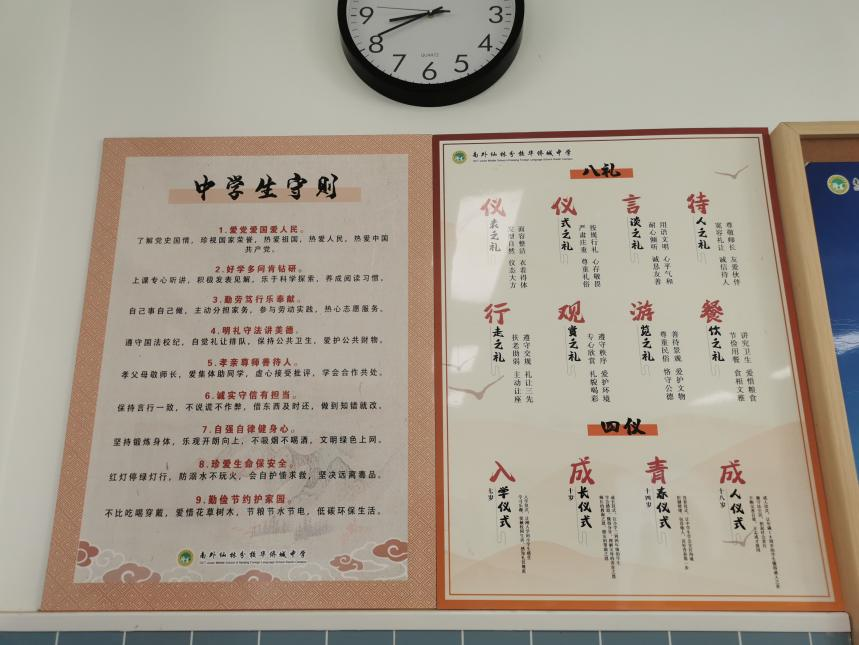 9
3
8
4
7
6
5
QUARTZ
中学生守则
1.爱党爱国爱人民。
了解党史国情，珍视国家荣誉，热爱祖国，热爱人民，热爱中国
共产党。
2.好学多问肯钻研。
上课专心听讲，积极发表见解，乐于科学探索，养成阅读习惯。
3.勤劳笃行乐奉献。
自己事自己做，主动分担家务，参与劳动实践，热心志愿服务。
4.明礼守法讲美德。
遵守国法校纪，自觉礼让排队，保持公共卫生，爱护公共财物。
5.孝亲尊师善待人。
孝父母敬师长，爱集体助同学，虚心接受批评，学会合作共处。
6.诚实守信有担当。
保持言行一致，不说谎不作弊，借东西及时还，做到知错就改。
7.自强自律健身心。
坚持锻炼身体，乐观开朗向上，不吸烟不喝酒，文明绿色上网。
8.珍爱生命保安全。
红灯停绿灯行，防溺水不玩火，会自护懂求救，坚决远离毒品。
9.勤俭节约护家园。
不比吃喝穿戴，爱惜花草树木，节粮节水节电，低碳环保生活。
南外仙林分校华侨城中学
南外仙林分校华侨城中学
八礼
仪表之礼
面容整洁 衣着得体
发型自然 仪态大方
仪式之礼
按规行礼 心存敬畏
严肃庄重 尊重礼俗
言谈之礼
用语文明 心平气和
耐心倾听 诚恳友善
待人之礼
尊敬师长 友爱伙伴
宽容礼让 诚信待人
行走之礼
遵守交规 礼让三先
扶老助弱 主动让座
观赏之礼
遵守秩序 爱护环境
专心欣赏 礼貌喝彩
游览之礼
善待景观 爱护文物
尊重民俗 恪守公德
餐饮之礼
讲究卫生 爱惜粮食
节俭用餐 食相文雅
四仪
入学仪式
七岁
成长仪式
十岁
青春仪式
十四岁
成人仪式
十八岁